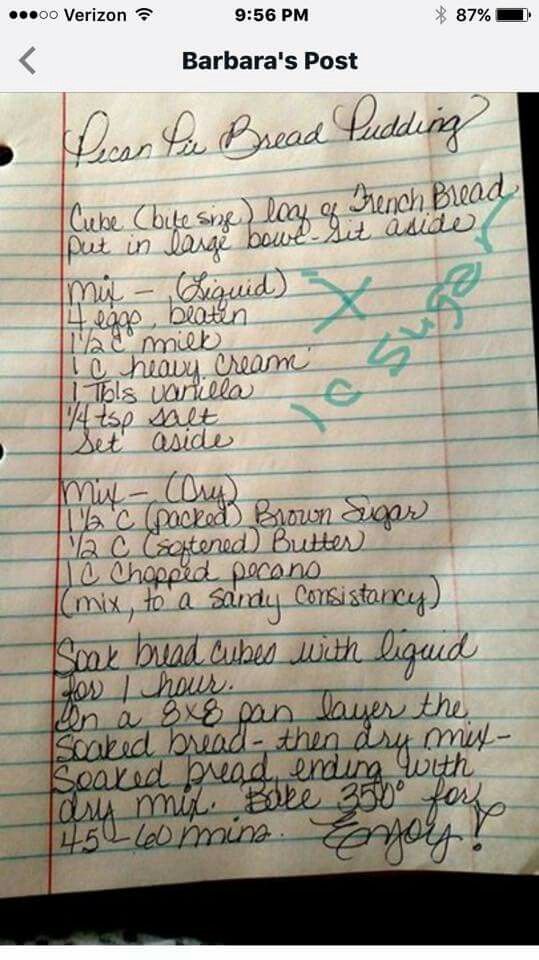 Verizon 9:56 PM 87%
Barbara's Post
Pecan Pie Bread Pudding
Cube (bite size) loaf of French Bread
put in large bowl - Set aside
Mix - (Liquid)
X
1 C Sugar
4 eggs, beaten
1 1/2 c milk
1 c heavy cream
1 Tbls vanilla
1/4 tsp salt
Set aside
Mix - (Dry)
1 1/2 C (packed) Brown Sugar
1/2 C (softened) Butter
1 C Chopped pecans
(mix, to a Sandy Consistancy)
Soak bread cubes with liquid
for 1 hour.
In a 8x8 pan layer the
Soaked bread - then dry mix -
Soaked bread, ending with
dry mix. Bake 350° for
45-60 mins. Enjoy!